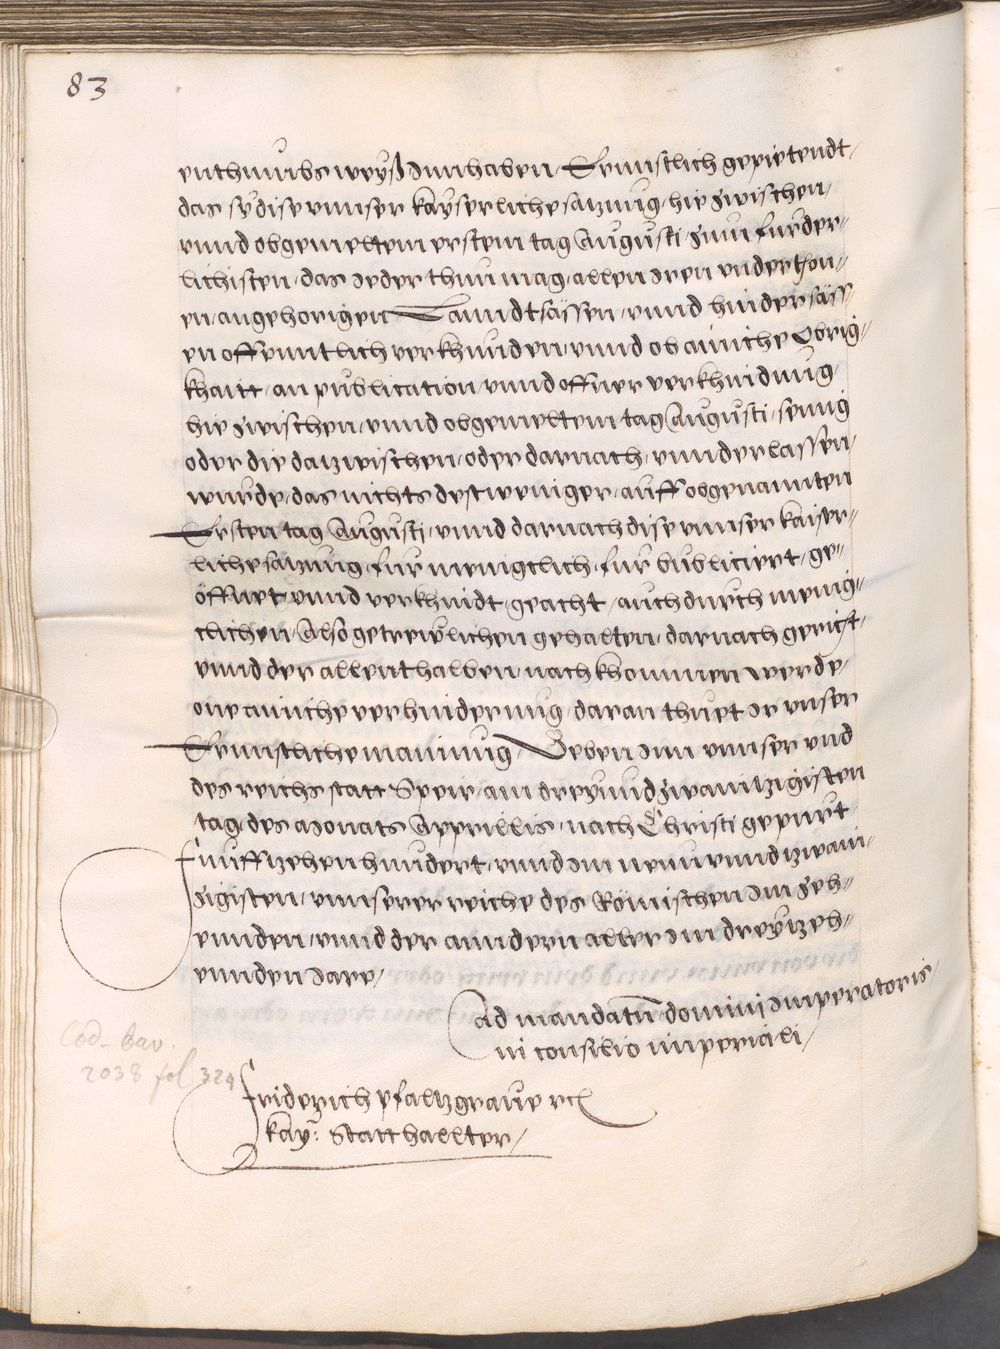 83
enthumbs weyß Innhaben, Ernnstlich gepietendt,
das sy dise unnser kayserliche satzung, hie zwischen,
unnd obgemeltem erstem tag Augusti, zum furder-
lichisten, das Jeder thun mag, allen Iren underthon-
en, angehorigen Lanndtsässen, unnd hindersäss-
en offenntlich verkhunden, unnd ob ainiche Obrig-
khaitt, an publication, unnd offner verkhundung,
hie zwischen, unnd obgemeltem tag Augusti, seumig
oder die datzwischen, oder darnach, unnderlassen,
wurde, das nichts destweniger, auff obgenannten
Ersten tag Augusti, unnd darnach dise unnser kaiser-
liche satzung, fur menigclich, fur bubliciert, ge-
öffnet unnd verkhundt, geacht, auch durch menig-
clichen, Also getrewlichen gehalten, darnach gericht,
unnd der allenthalben nachkhommen werde,
one ainiche verhinderung, daran thuet Ir unser
Ernnstliche mainung, Geben Inn unnser und
des reichs statt Speir, am dreyundzwaintzigisten
tag, des Monats Apprillis, nach Christi gepurt
funffzehenhundert, unnd Im neunundtzwain-
zigisten, unnserer reiche des Römischen Im zeh-
ennden, unnd der anndern aller Im dreytzeh-
ennden Jare,
Ad mandatum domini Imperatoris,
in consilio imperiali,
Cod. bav.
2038 fol 324
friderich pfaltzgrave rc
kay: Statthallter,